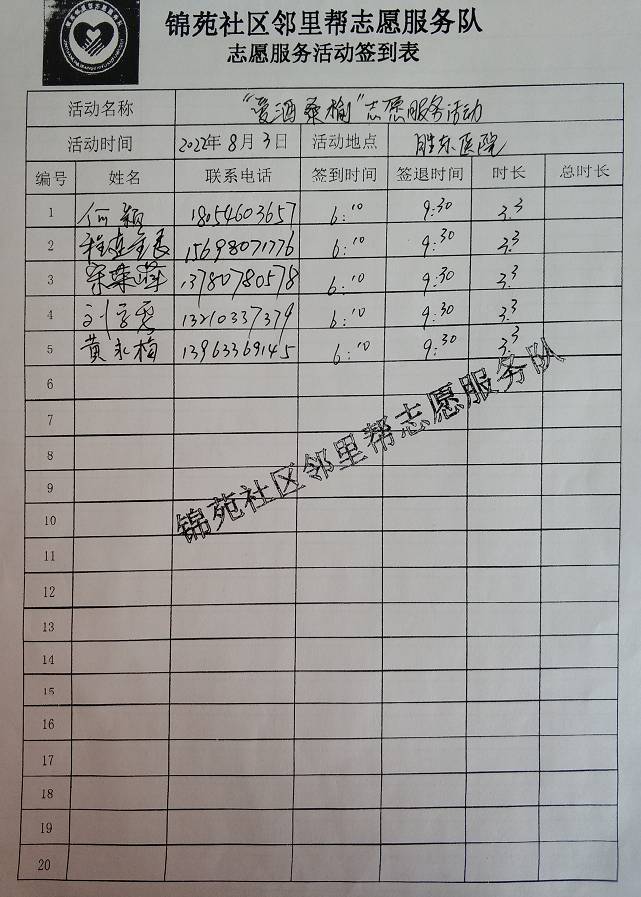 锦苑社区邻里帮志愿服务队
志愿服务活动签到表
活动名称 “爱洒桑榆”志愿服务活动
活动时间 2022年8月3日 活动地点 胜东医院
编号 姓名 联系电话 签到时间 签退时间 时长 总时长
1 何颖 18054603657 6:10 9:30 3.3
2 15698071776 6:10 9:30 3.3
3 13780780578 6:10 9:30 3.3
4 刘 13210337379 6:10 9:30 3.3
5 黄永梅 13963369145 6:10 9:30 3.3
6
7
8
9
10
11
12
13
14
15
16
17
18
19
20
锦苑社区邻里帮志愿服务队